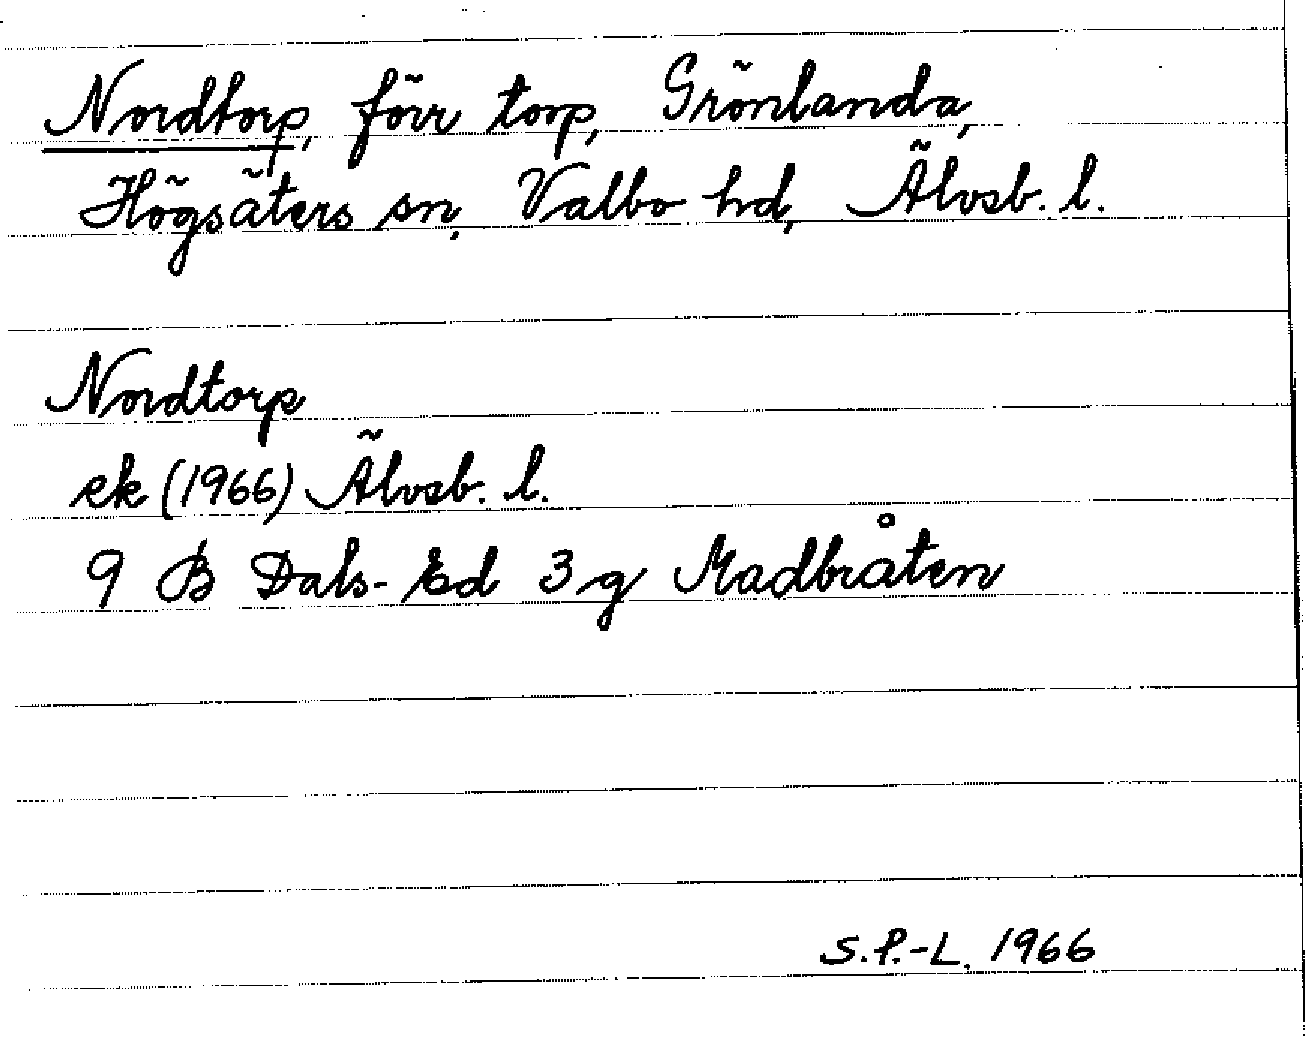 Nordtorp, förr torp, Grönlanda,
Högsäters sn, Valbo hd, Älvsb. l.
Nordtorp
ek (1966) Älvsb. l.
9 B Dals-Ed 3 g Madbråten
S.P.-L. 1966